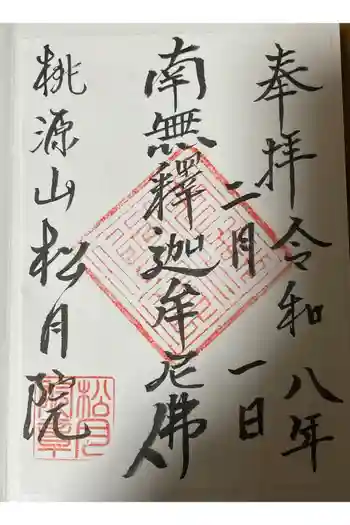 奉拝令和八年
二月一日
南無釋迦牟尼佛
桃源山松月院